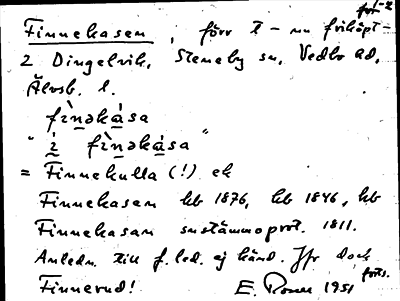 1-2
Finnekasen, förr t - nu friköpt -
2 Dingelvik, Steneby sn, Vedbo hd,
Älvsb. l.
fìnəkàsa
"i fìnəkàsa"
= Finnekulla (!) ek
Finnekasen kb 1876, kb 1846, hb
Finnekasan sustämmoprot. 1811.
Anledn. till f. led. ej känd. Jfr dock
Finnerud! E. 1951
forts.